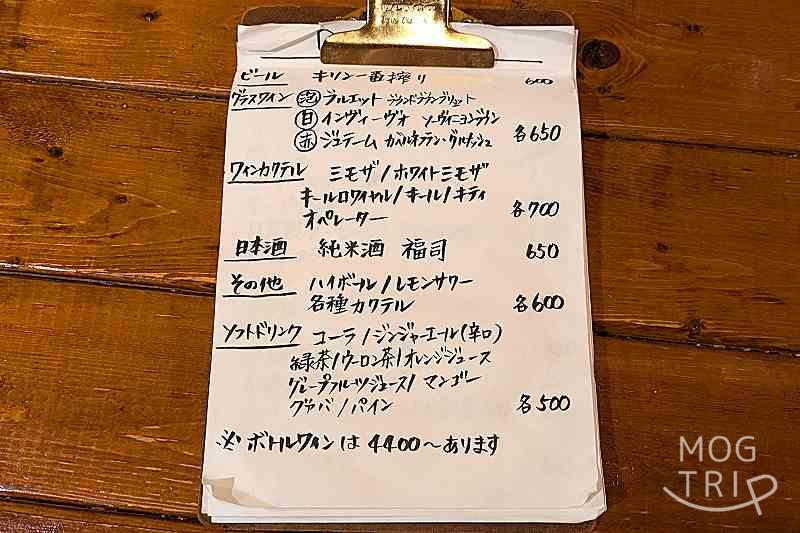 ビール キリン一番搾り 600
グラスワイン 泡 ブルエット グランドブランブリュット
白 インヴィーヴォ ソーヴィニヨンブラン
赤 ジュテーム カベルネフラン・グルナッシュ 各650
ワインカクテル ミモザ/ホワイトミモザ
キールロワイヤル/キール/キティ
オペレーター 各700
日本酒 純米酒 福司 650
その他 ハイボール/レモンサワー
各種カクテル 各600
ソフトドリンク コーラ/ジンジャーエール(辛口)
緑茶/ウーロン茶/オレンジジュース
グレープフルーツジュース/マンゴー
グァバ/パイン 各500
※ボトルワインは4400~あります
MOG
TRIP